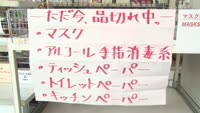 ただ今、品切れ中。
・マスク
・アルコール手指消毒系
・ティッシュペーパー
・トイレットペーパー
・キッチンペーパー
マスク
MASKS